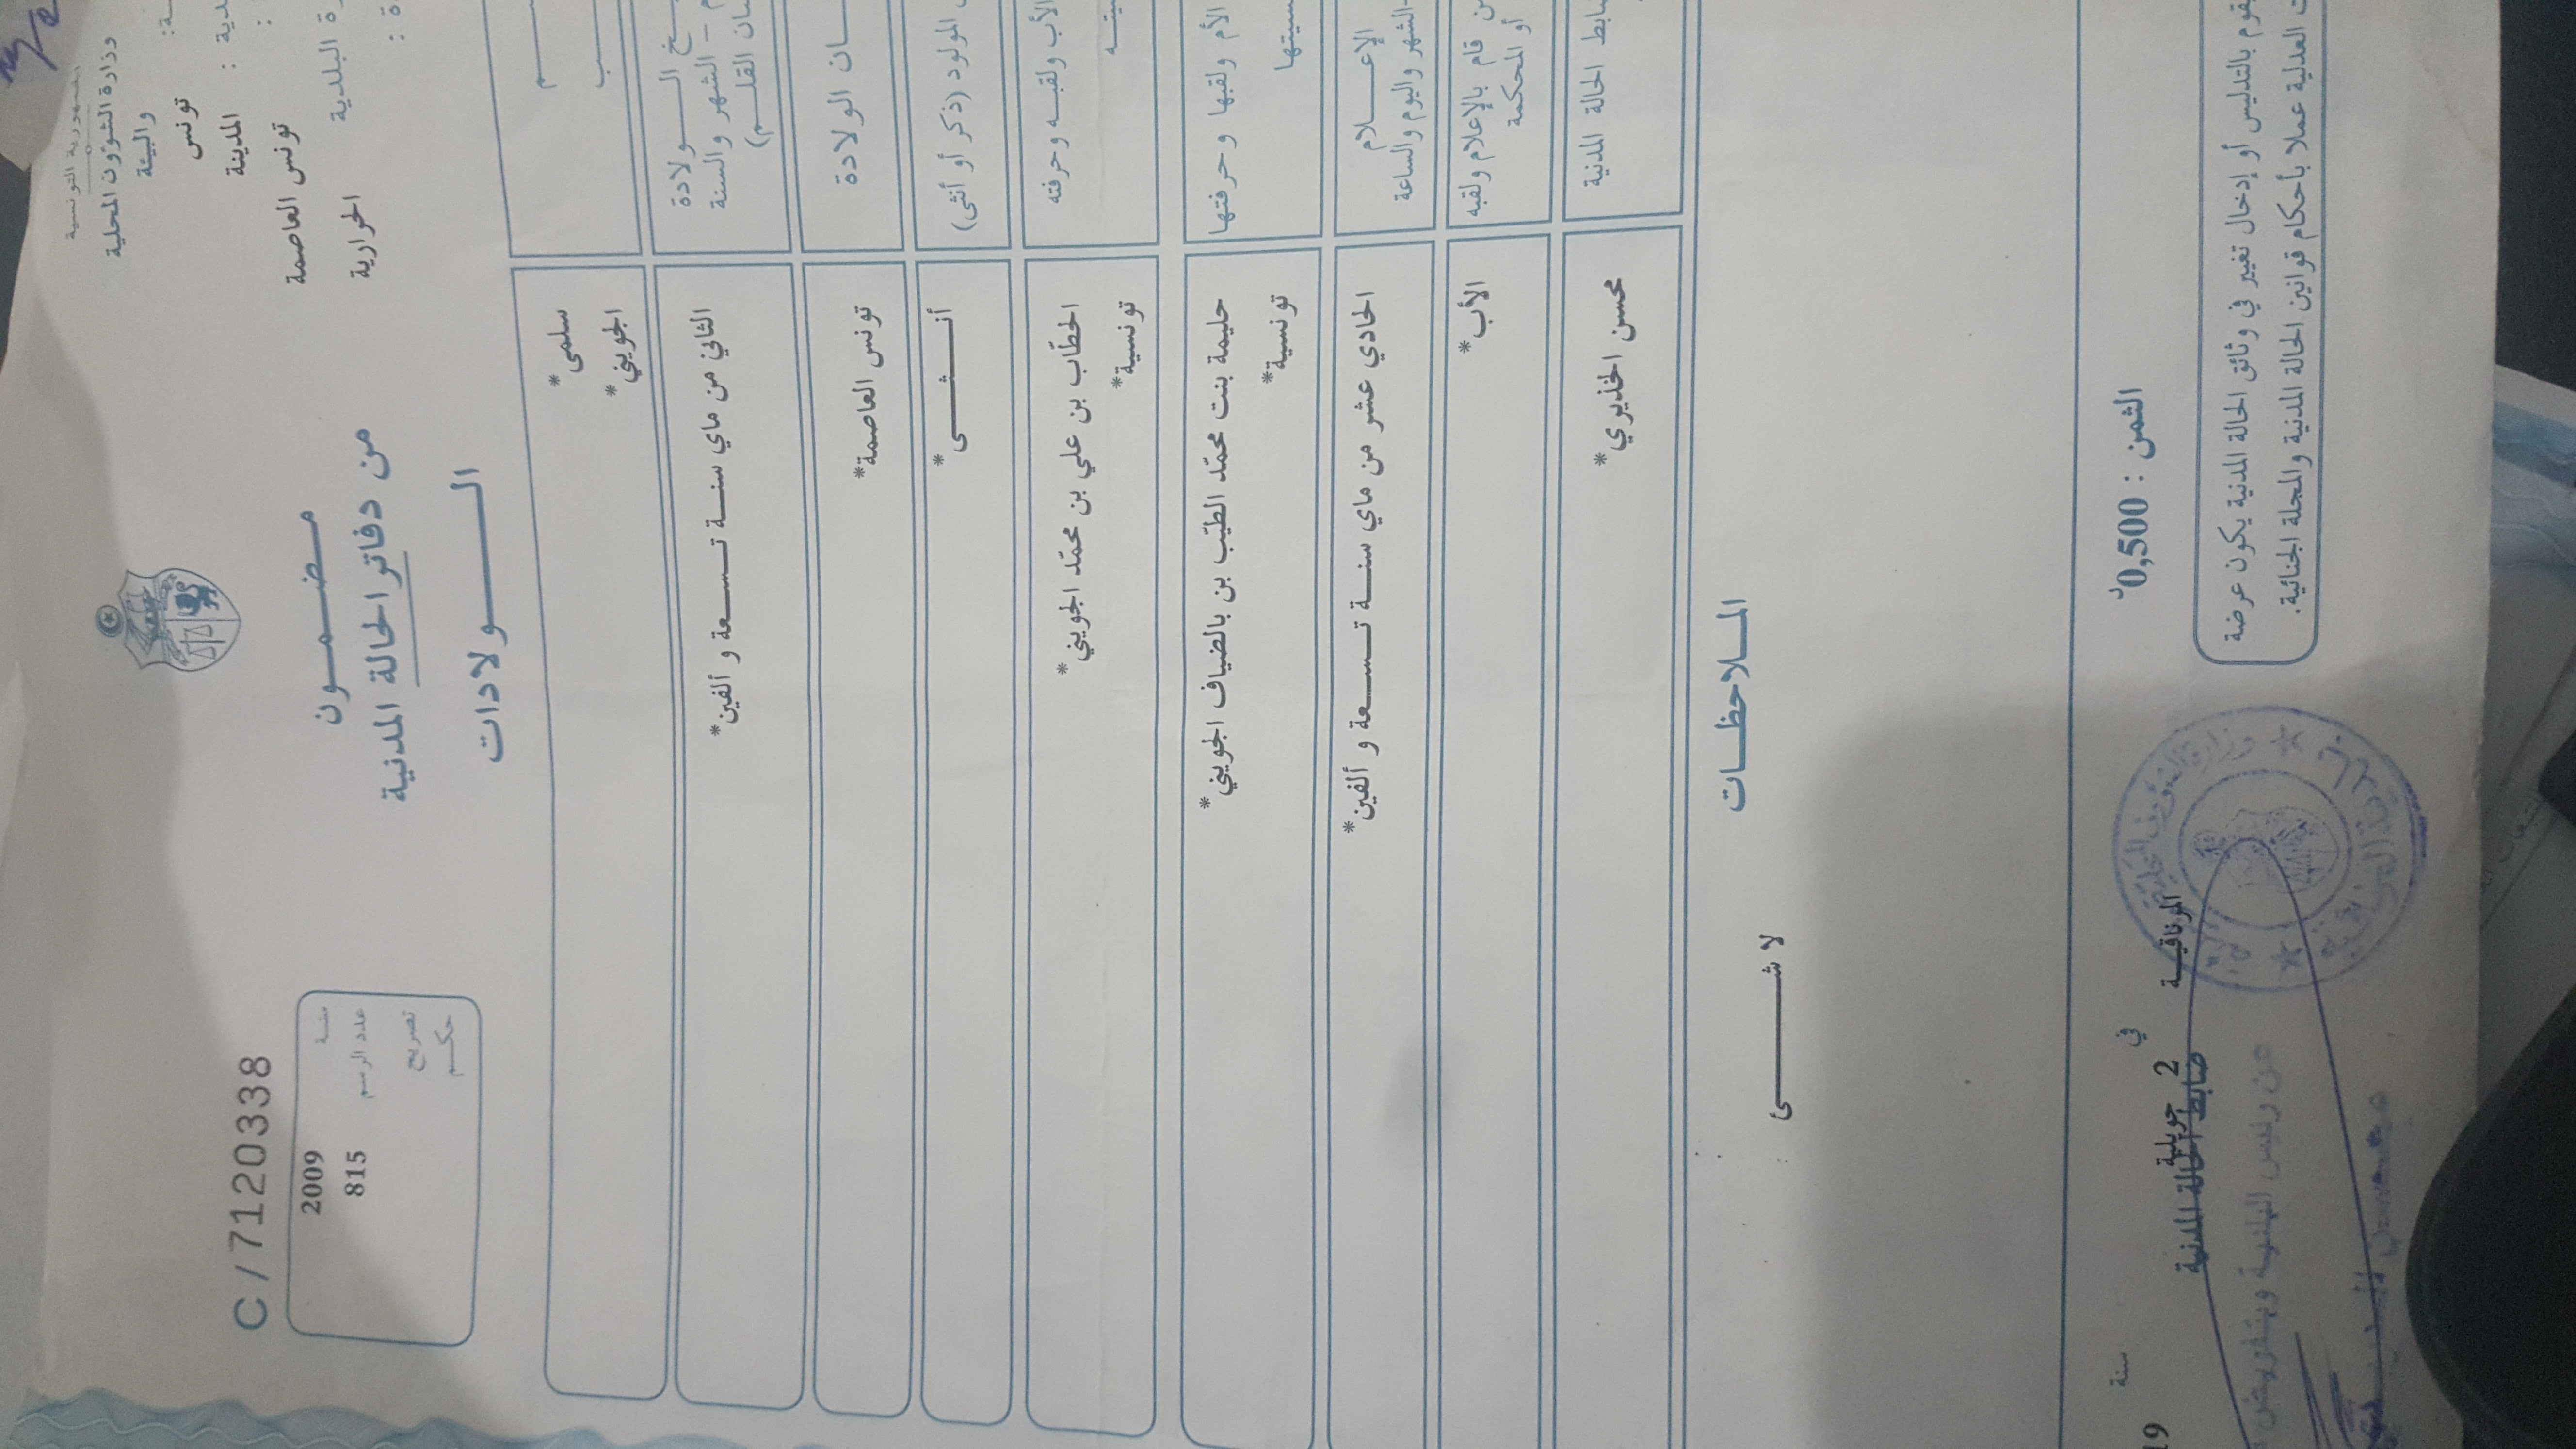 الجمهورية التونسية
وزارة الشؤون المحلية
والبيئة
تونس
المدينة :
تونس العاصمة
الحرارية
C/7120338
سنة 2009
عدد الرسم 815
تصريح
حكم
مضمون
من دفاتر الحالة المدنية
الولادات
سلمى*
الجويني*
الولادة
الشهر والسنة
القلم)
الثاني من ماي سنة تسعة و ألفين*
الولادة
تونس العاصمة*
المولود (ذكر أو أنثى)
أنثى*
الأب ولقبه وحرفته
الحطّاب بن علي بن محمّد الجويني*
تونسية*
الأم ولقبها وحرفتها
حليمة بنت محمّد الطيّب بن بالضياف الجويني*
تونسية*
الإعلام
الشهر واليوم والساعة
الحادي عشر من ماي سنة تسعة و ألفين*
قام بالإعلام ولقبه
أو المحكمة
الأب*
الحالة المدنية
محسن الخذيري*
الملاحظات
لا شيء
الثمن : 0,500 د
بالتدليس أو إدخال تغيير في وثائق الحالة المدنية يكون عرضة
العدلية عملا بأحكام قوانين الحالة المدنية والمجلة الجنائية.
المرناقية في 2 جويلية سنة 19
ضابط الحالة المدنية
عن رئيس البلدية وبتفويض